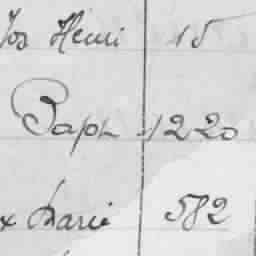 Jos Henri 15
Bapt 1220
x Marie 582